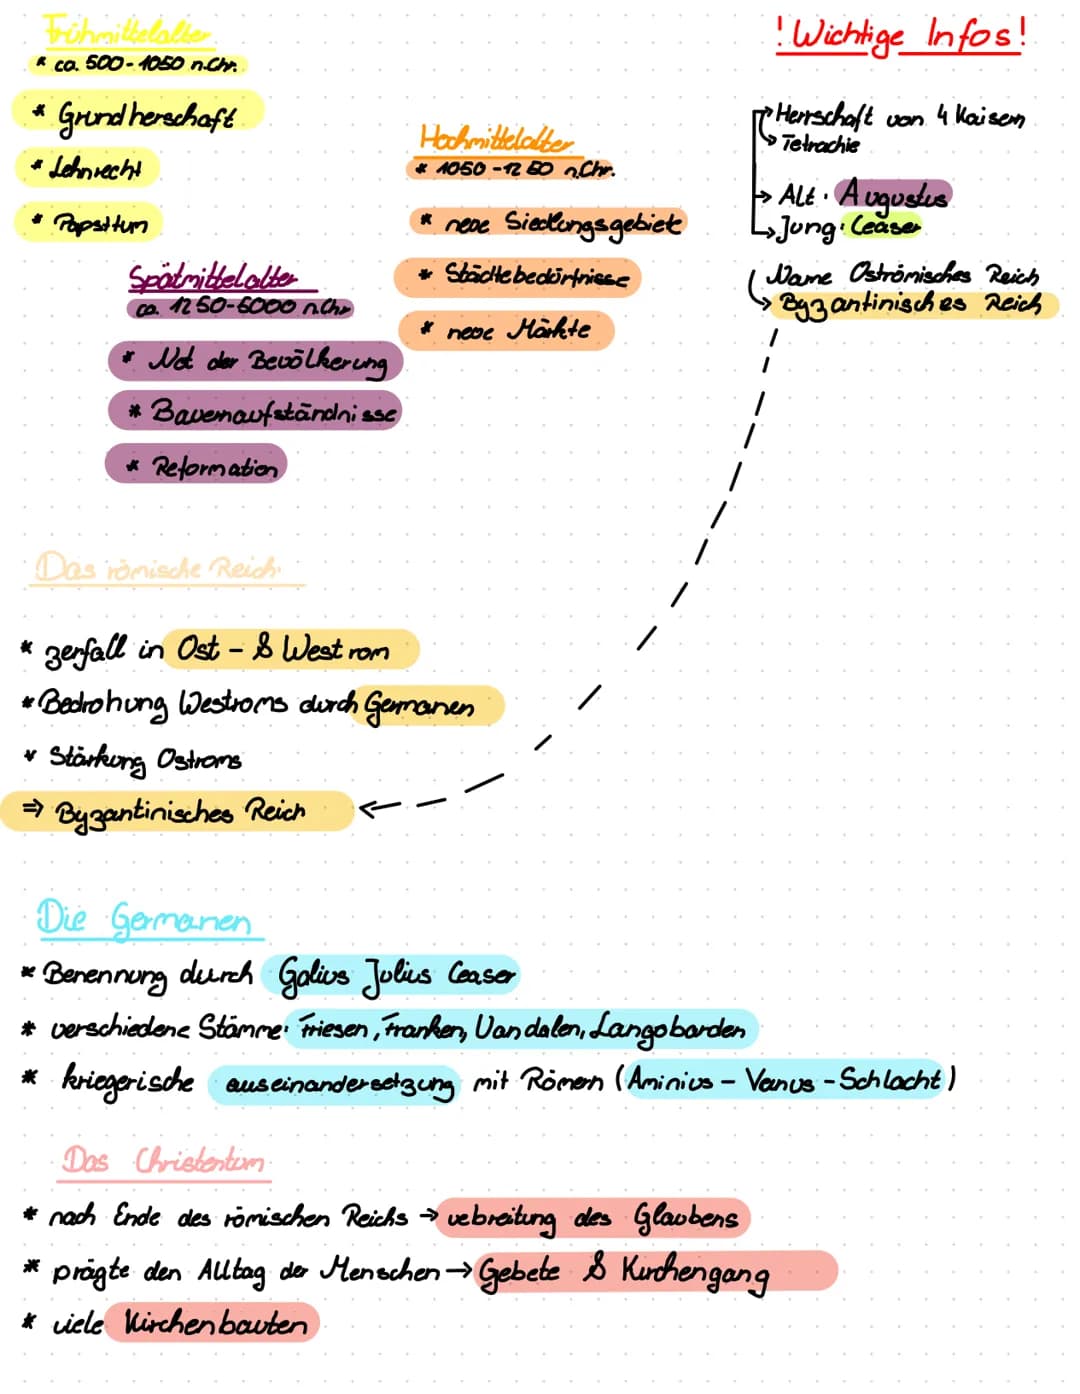 Frühmittelalter
* ca. 500-1050 n.Chr.
* Grundherschaft
* Lehnrecht
* Papsttum
Hochmittelalter
* 1050-1250 n.Chr.
* neue Siedlungsgebiete
* Städtebedürfnisse
* neue Märkte
Spätmittelalter
ca. 1250-6000 n.Chr
* Not der Bevölkerung
* Bauernaufständnisse
* Reformation
! Wichtige Infos!
Herrschaft von 4 Kaisern
Tetrachie
Alt: Augustus
Jung: Ceaser
Name Oströmisches Reich
Byzantinisches Reich
Das römische Reich
* zerfall in Ost- & Westrom
* Bedrohung Westroms durch Germanen
* Stärkung Ostroms
⇒ Byzantinisches Reich
Die Germanen
* Benennung durch Galius Julius Ceaser
* verschiedene Stämme: Friesen, Franken, Vandalen, Langobarden
* kriegerische auseinandersetzung mit Römern (Aminius - Varus - Schlacht)
Das Christentum
* nach Ende des römischen Reichs → vebreitung des Glaubens
* prägte den Alltag der Menschen → Gebete & Kirchengang
* viele Kirchenbauten